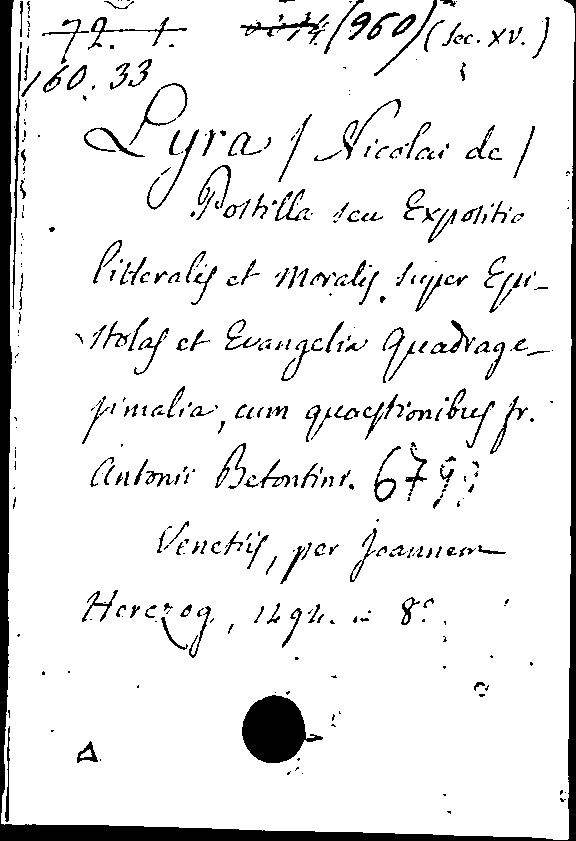 72. 1. (960) (Sec. XV.)
160.33
Lyra / Nicolai de /
Postilla seu Expositio
litteralis et moralis super Epi-
stolas et Evangelia Quadrage-
simalia, cum quaestionibus fr.
Antonii Betontini. 679
Venetiis, per Joannem
Herczog, 1494. in 8°.